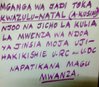 MGANGA WA JADI TOKA
KWAZULU-NATAL (A-KUSINI)
NJOO NA JICHO LA KULIA
LA MWENZA WA NDOA
YA JINSIA MOJA UJI-
HAKIKISHIE URC-ULDC
WAPATIKANA MAGU
MWANZA.